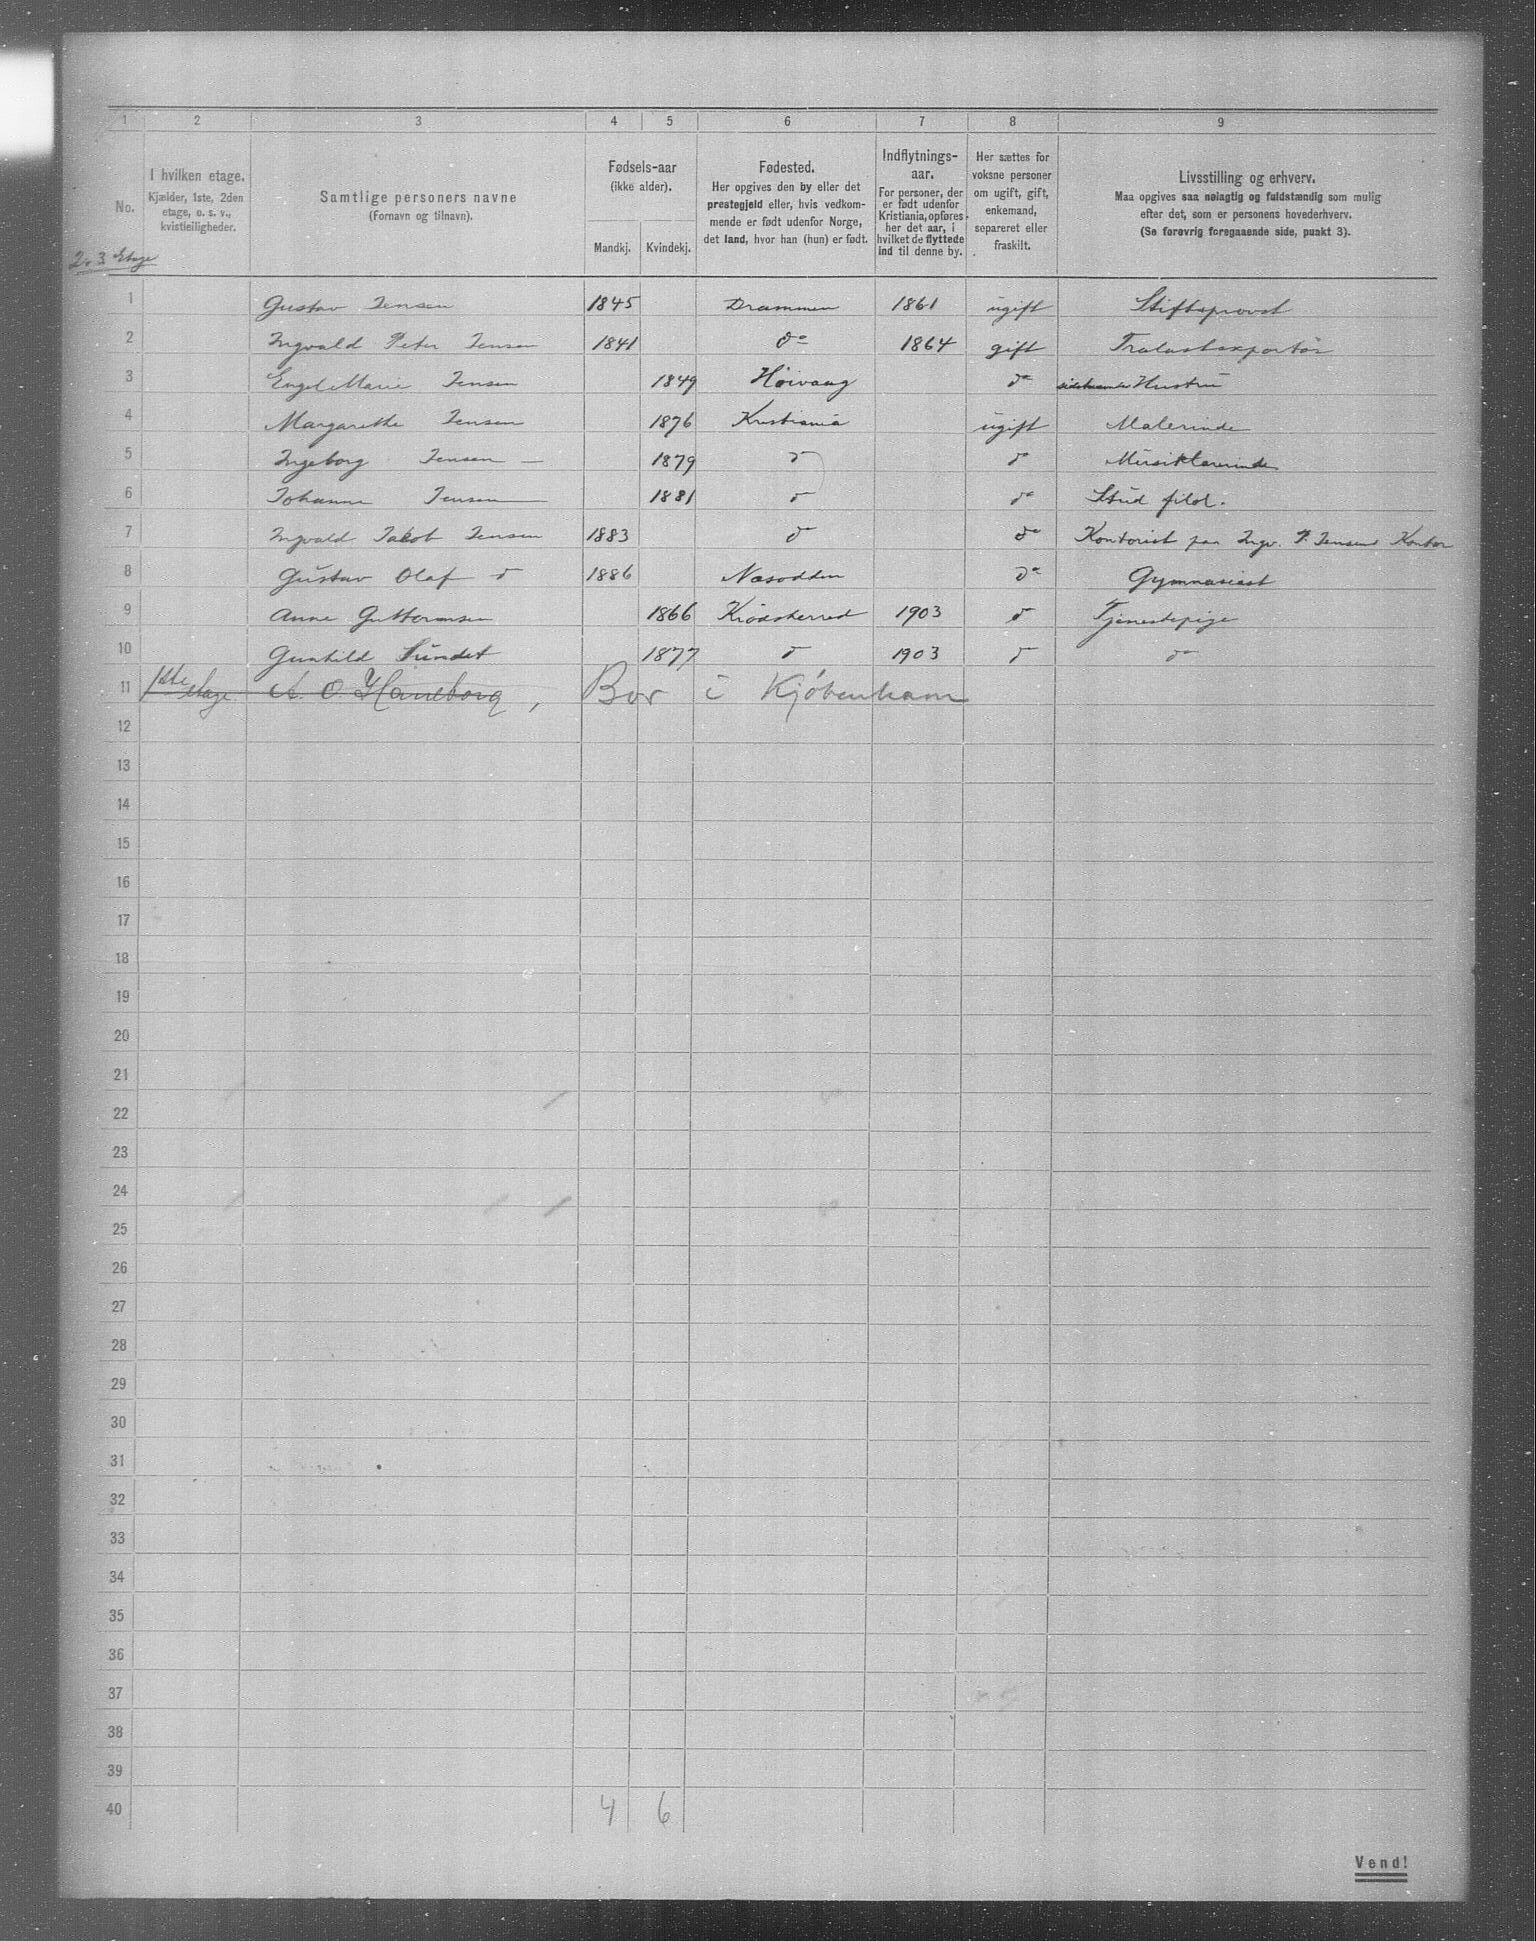 1 2 3 4 5 6 7 8 9
No.
I hvilken etage.
Kjælder, 1ste, 2den
etage, o. s. v.,
kvistleiligheder.
Samtlige personers navne
(Fornavn og tilnavn).
Fødsels-aar
(ikke alder).
Mandkj. Kvindekj.
Fødested.
Her opgives den by eller det
prestegjeld eller, hvis vedkom-
mende er født udenfor Norge,
det land, hvor han (hun) er født.
Indflytnings-
aar.
For personer, der
er født udenfor
Kristiania, opføres
her det aar, i
hvilket de flyttede
ind til denne by.
Her sættes for
voksne personer
om ugift, gift,
enkemand,
separeret eller
fraskilt.
Livsstilling og erhverv.
Maa opgives saa nøiagtig og fuldstændig som mulig
efter det, som er personens hovederhverv.
(Se forøvrig foregaaende side, punkt 3).
2 & 3 Etage
1 Gustav Jensen 1845 Drammen 1861 ugift Stiftsprovst
2 Ingvald Peter Jensen 1841 do 1864 gift Trælastexportør
3 Engel Marie Jensen 1849 Høivaag do Hustru
4 Margarethe Jensen 1876 Kristiania ugift Malerinde
5 Ingeborg Jensen 1879 do do Musiklærerinde
6 Johanne Jensen 1881 do do Stud filol.
7 Ingvald Jakob Jensen 1883 do do Kontorist paa Ingv. P. Jensens Kontor
8 Gustav Olaf do 1886 Næsodden do Gymnasiast
9 Anne Guttormsen 1866 Krødsherred 1903 do Tjenestepige
10 Gunhild Sundet 1877 do 1903 do do
11 1ste etage A. O. Haneborg, Bor i Kjøbenhavn
12
13
14
15
16
17
18
19
20
21
22
23
24
25
26
27
28
29
30
31
32
33
34
35
36
37
38
39
40 4 6
Vend!